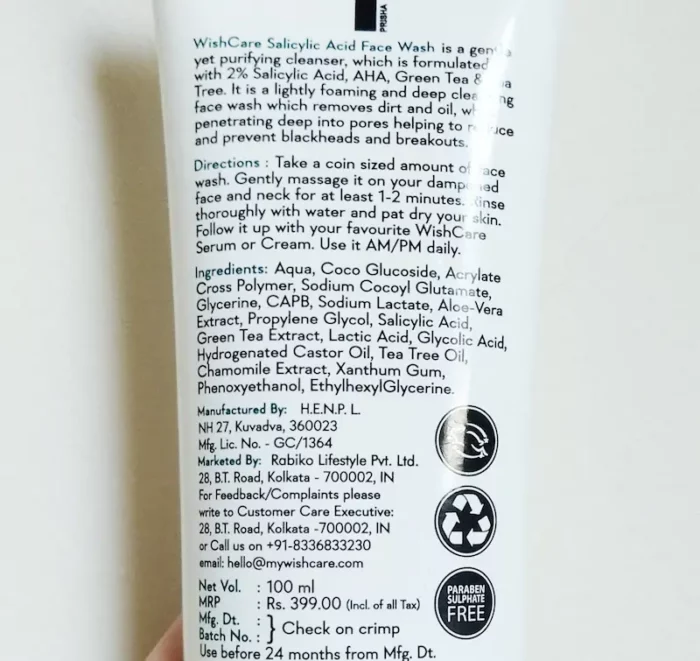 PRISHA
WishCare Salicylic Acid Face Wash is a
yet purifying cleanser, which is formulated
with 2% Salicylic Acid, AHA, Green Tea &
Tree. It is a lightly foaming and deep
face wash which removes dirt and oil,
penetrating deep into pores helping to
and prevent blackheads and breakouts.
Directions : Take a coin sized amount of
wash. Gently massage it on your
face and neck for at least 1-2 minutes. Rinse
thoroughly with water and pat dry your skin.
Follow it up with your favourite WishCare
Serum or Cream. Use it AM/PM daily.
Ingredients: Aqua, Coco Glucoside, Acrylate
Cross Polymer, Sodium Cocoyl Glutamate,
Glycerine, CAPB, Sodium Lactate, Aloe-Vera
Extract, Propylene Glycol, Salicylic Acid,
Green Tea Extract, Lactic Acid, Glycolic Acid,
Hydrogenated Castor Oil, Tea Tree Oil,
Chamomile Extract, Xanthum Gum,
Phenoxyethanol, EthylhexylGlycerine.
Manufactured By: H.E.N.P. L.
NH 27, Kuvadva, 360023
Mfg. Lic. No. - GC/1364
Marketed By: Rabiko Lifestyle Pvt. Ltd.
28, B.T. Road, Kolkata - 700002, IN
For Feedback/Complaints please
write to Customer Care Executive:
28, B.T. Road, Kolkata -700002, IN
or Call us on +91-8336833230
email: hello@mywishcare.com
PARABEN
SULPHATE
FREE
Net Vol. : 100 ml
MRP : Rs. 399.00 (Incl. of all Tax)
Mfg. Dt. :
Batch No. : } Check on crimp
Use before 24 months from Mfg. Dt.